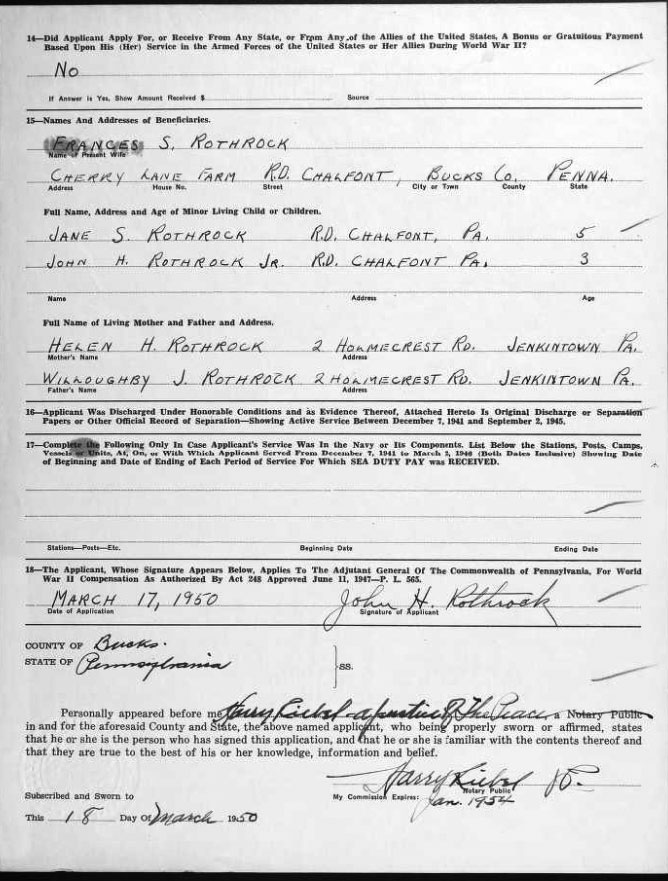 14—Did Applicant Apply For, or Receive From Any State, or From Any of the Allies of the United States, A Bonus or Gratuitous Payment
Based Upon His (Her) Service in the Armed Forces of the United States or Her Allies During World War II?
No
If Answer is Yes, Show Amount Received $ Source
15—Names And Addresses of Beneficiaries.
FRANCES S. ROTHROCK
Name of Present Wife
CHERRY LANE FARM R.D. CHALFONT, BUCKS CO. PENNA.
Address House No. Street City or Town County State
Full Name, Address and Age of Minor Living Child or Children.
JANE S. ROTHROCK R.D. CHALFONT, PA. 5
JOHN H. ROTHROCK JR. R.D. CHALFONT PA. 3
Name Address Age
Full Name of Living Mother and Father and Address.
HELEN H. ROTHROCK 2 HOLMECREST RD. JENKINTOWN PA.
Mother's Name Address
WILLOUGHBY J. ROTHROCK 2 HOLMECREST RD. JENKINTOWN PA.
Father's Name Address
16—Applicant Was Discharged Under Honorable Conditions and as Evidence Thereof, Attached Hereto Is Original Discharge or Separation
Papers or Other Official Record of Separation—Showing Active Service Between December 7, 1941 and September 2, 1945.
17—Complete the Following Only In Case Applicant's Service Was In the Navy or Its Components. List Below the Stations, Posts, Camps,
Vessels or Units, At, On, or With Which Applicant Served From December 7, 1941 to March 2, 1946 (Both Dates Inclusive) Showing Date
of Beginning and Date of Ending of Each Period of Service For Which SEA DUTY PAY was RECEIVED.
Stations—Posts—Etc. Beginning Date Ending Date
18—The Applicant, Whose Signature Appears Below, Applies To The Adjutant General Of The Commonwealth of Pennsylvania, For World
War II Compensation As Authorized By Act 248 Approved June 11, 1947—P. L. 565.
MARCH 17, 1950 John H. Rothrock
Date of Application Signature of Applicant
COUNTY OF Bucks.
STATE OF Pennsylvania SS.
Personally appeared before me Harry Kiebel - a justice of The Peace, a Notary Public
in and for the aforesaid County and State, the above named applicant, who being properly sworn or affirmed, states
that he or she is the person who has signed this application, and that he or she is familiar with the contents thereof and
that they are true to the best of his or her knowledge, information and belief.
Harry Kiebel J.P.
Notary Public
Subscribed and Sworn to My Commission Expires: Jan. 1954
This 18 Day Of March 1950